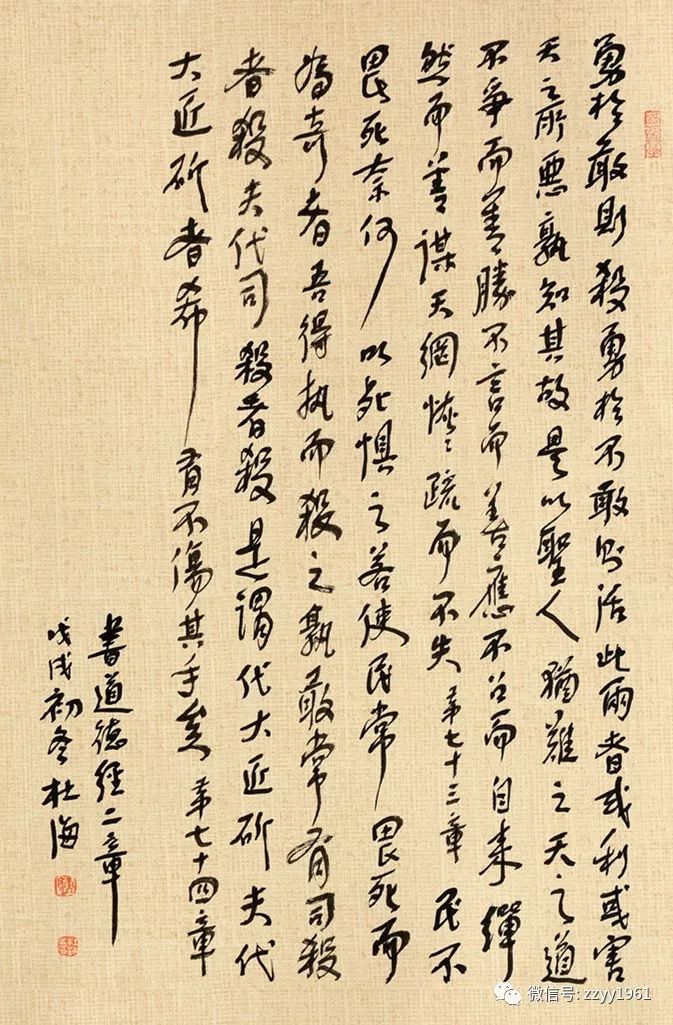 勇於敢則殺勇於不敢則活此兩者或利或害
天之所惡孰知其故是以聖人猶難之天之道
不爭而善勝不言而善應不召而自来繟
然而善謀天網恢〻疏而不失 第七十三章 民不
畏死奈何以死懼之若使民常畏死而
為奇者吾得执而殺之孰敢常有司殺
者殺夫代司殺者殺是謂代大匠斫夫代
大匠斫者希有不傷其手矣 第七十四章
書道德經二章
戊戌初冬杜海
微信号: zzyy1961